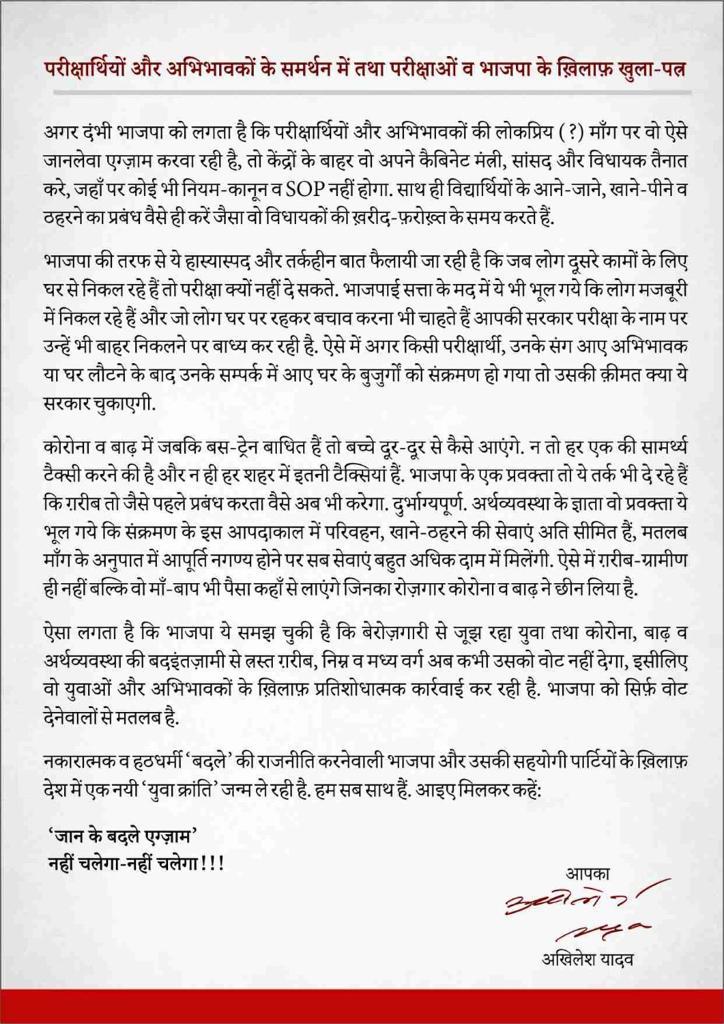 परीक्षार्थियों और अभिभावकों के समर्थन में तथा परीक्षाओं व भाजपा के ख़िलाफ़ खुला-पत्र
अगर दंभी भाजपा को लगता है कि परीक्षार्थियों और अभिभावकों की लोकप्रिय (?) माँग पर वो ऐसे
जानलेवा एग्ज़ाम करवा रही है, तो केंद्रों के बाहर वो अपने कैबिनेट मंत्री, सांसद और विधायक तैनात
करे, जहाँ पर कोई भी नियम-कानून व SOP नहीं होगा. साथ ही विद्यार्थियों के आने-जाने, खाने-पीने व
ठहरने का प्रबंध वैसे ही करें जैसा वो विधायकों की ख़रीद-फ़रोख़्त के समय करते हैं.
भाजपा की तरफ से ये हास्यास्पद और तर्कहीन बात फैलायी जा रही है कि जब लोग दूसरे कामों के लिए
घर से निकल रहे हैं तो परीक्षा क्यों नहीं दे सकते. भाजपाई सत्ता के मद में ये भी भूल गये कि लोग मजबूरी
में निकल रहे हैं और जो लोग घर पर रहकर बचाव करना भी चाहते हैं आपकी सरकार परीक्षा के नाम पर
उन्हें भी बाहर निकलने पर बाध्य कर रही है. ऐसे में अगर किसी परीक्षार्थी, उनके संग आए अभिभावक
या घर लौटने के बाद उनके सम्पर्क में आए घर के बुजुर्गों को संक्रमण हो गया तो उसकी क़ीमत क्या ये
सरकार चुकाएगी.
कोरोना व बाढ़ में जबकि बस-ट्रेन बाधित हैं तो बच्चे दूर-दूर से कैसे आएंगे. न तो हर एक की सामर्थ्य
टैक्सी करने की है और न ही हर शहर में इतनी टैक्सियां हैं. भाजपा के एक प्रवक्ता तो ये तर्क भी दे रहे हैं
कि ग़रीब तो जैसे पहले प्रबंध करता वैसे अब भी करेगा. दुर्भाग्यपूर्ण. अर्थव्यवस्था के ज्ञाता वो प्रवक्ता ये
भूल गये कि संक्रमण के इस आपदाकाल में परिवहन, खाने-ठहरने की सेवाएं अति सीमित हैं, मतलब
माँग के अनुपात में आपूर्ति नगण्य होने पर सब सेवाएं बहुत अधिक दाम में मिलेंगी. ऐसे में ग़रीब-ग्रामीण
ही नहीं बल्कि वो माँ-बाप भी पैसा कहाँ से लाएंगे जिनका रोज़गार कोरोना व बाढ़ ने छीन लिया है.
ऐसा लगता है कि भाजपा ये समझ चुकी है कि बेरोज़गारी से जूझ रहा युवा तथा कोरोना, बाढ़ व
अर्थव्यवस्था की बदइंतज़ामी से त्रस्त ग़रीब, निम्न व मध्य वर्ग अब कभी उसको वोट नहीं देगा, इसीलिए
वो युवाओं और अभिभावकों के ख़िलाफ़ प्रतिशोधात्मक कार्रवाई कर रही है. भाजपा को सिर्फ़ वोट
देनेवालों से मतलब है.
नकारात्मक व हठधर्मी ‘बदले’ की राजनीति करनेवाली भाजपा और उसकी सहयोगी पार्टियों के ख़िलाफ़
देश में एक नयी ‘युवा क्रांति’ जन्म ले रही है. हम सब साथ हैं. आइए मिलकर कहें:
‘जान के बदले एग्ज़ाम’
नहीं चलेगा-नहीं चलेगा!!!
आपका
अखिलेश यादव